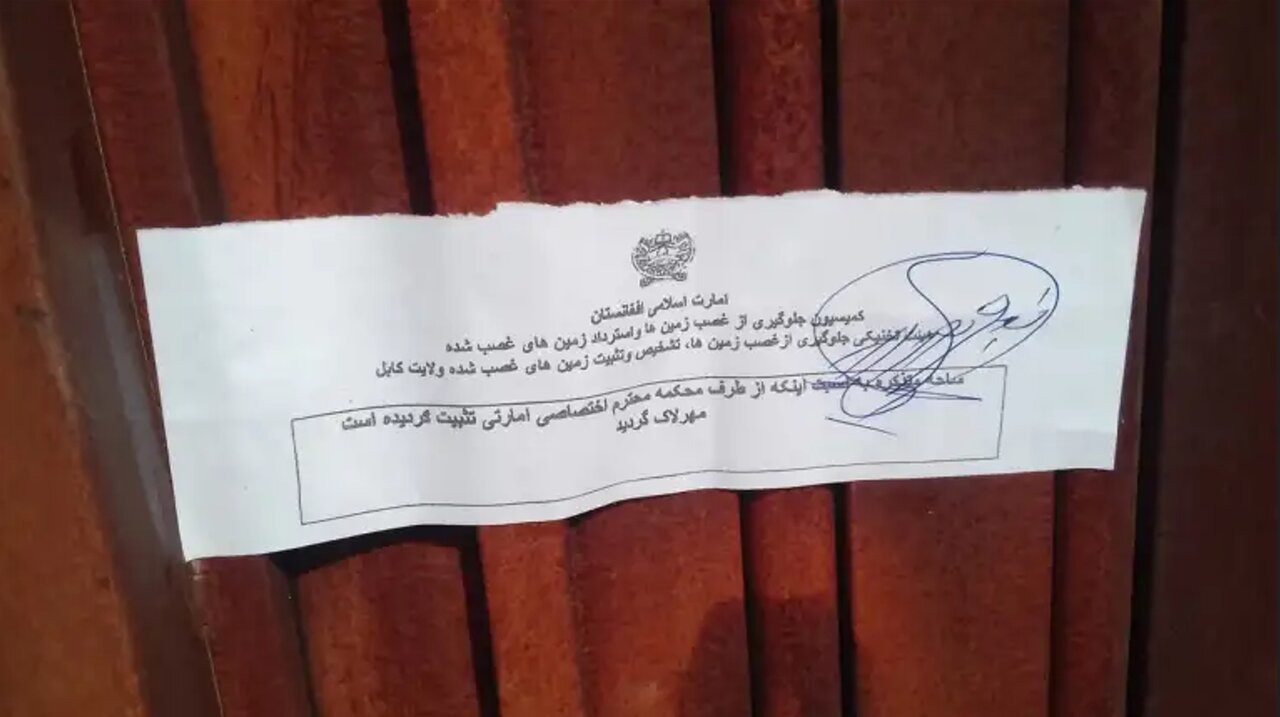 امارت اسلامی افغانستان
کمیسیون جلوگیری از غصب زمین ها واسترداد زمین های غصب شده
تخنیکی جلوگیری ازغصب زمین ها، تشخیص وتثبیت زمین های غصب شده ولایت کابل
ساحه متذکره به نسبت اینکه از طرف محکمه محترم اختصاصی امارتی تثبیت گردیده است
مهرلاک گردید